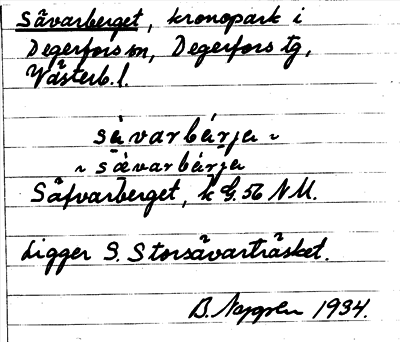 Sävarberget, kronopark i
Degerfors sn, Degerfors tg,
Västerb. l.
sàvarbárja ~
~ sàvarbárja
Säfvarberget, k G. 56 NM.
Ligger S. Storsävarträsket.
B. Nygren 1934.